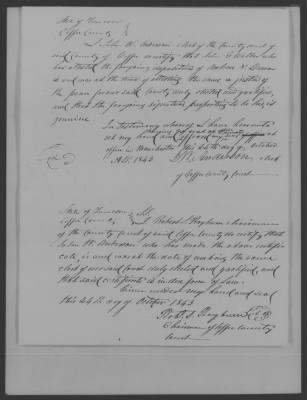 State of Tennessee
Coffee County
I John W. Anderson, Clerk of the County Court of
said County of Coffee certify that John
has attested the foregoing deposition of
is and was at the time of attesting the same a justice of
the peace for said County duly elected and qualified,
and that the foregoing signature purporting to be his is
genuine.
In testimony whereof I have hereunto
set my hand and
office in Manchester this 24th day of October
A.D. 1843
Anderson, Clerk
of Coffee County Court
State of Tennessee
Coffee County I Robert S. Rayburn Chairman
of the County Court of said Coffee County do certify that
John W. Anderson who has made the above certifi
cate, is and was at the date of making the same
clerk of our said Court duly elected and qualified, and
that said certificate is in due form of law.
Given under my hand and seal
this 24th day of October 1843
Robt. S. Rayburn
Chairman of Coffee County
Court